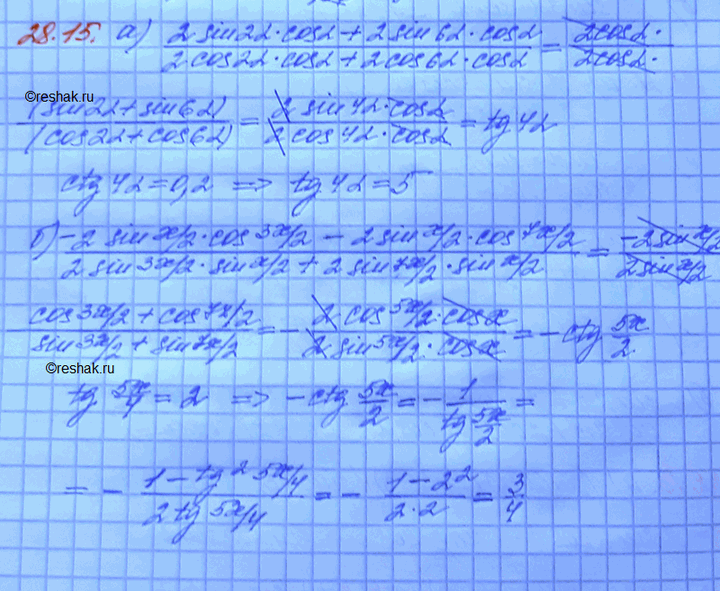 28.15. а) (2 sin2α·cosα + 2 sin6α·cosα)/(2 cos2α·cosα + 2 cos6α·cosα) = (2cosα·)/(2cosα·)
©reshak.ru
(sin2α + sin6α)/(cos2α + cos6α) = (2 sin4α·cosα)/(2 cos4α·cosα) = tg 4α
ctg 4α = 0,2 => tg 4α = 5
б) (-2 sin x/2·cos 3x/2 - 2 sin x/2·cos 7x/2)/(2 sin 3x/2·sin x/2 + 2 sin 7x/2·sin x/2) = (-2 sin x/2)/(2 sin x/2)
(cos 3x/2 + cos 7x/2)/(sin 3x/2 + sin 7x/2) = - (2 cos 5x/2·cos x)/(2 sin 5x/2·cos x) = - ctg 5x/2
©reshak.ru
tg 5x/4 = 2 => - ctg 5x/2 = - 1/(tg 5x/2) =
= - (1 - tg² 5x/4)/(2 tg 5x/4) = - (1 - 2²)/(2·2) = 3/4